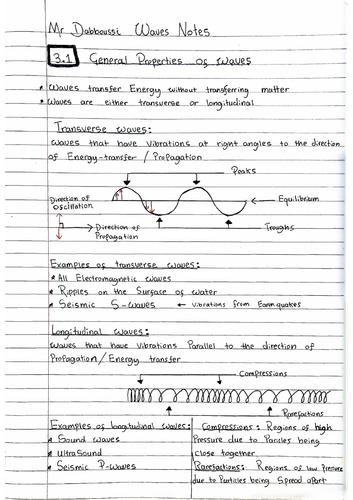 Mr Dabboussi Waves Notes
3.1 General Properties of Waves
* Waves transfer Energy without transferring matter
* Waves are either transverse or longitudinal
Transverse waves:
Waves that have Vibrations at right angles to the direction
of Energy-transfer / Propagation
Peaks
Direction of
Oscillation
Equilibrium
Direction of
Propagation
Troughs
Examples of transverse waves:
* All Electromagnetic waves
* Ripples on the Surface of water
* Seismic S-waves ← Vibrations from Earthquakes
Longitudinal waves:
Waves that have Vibrations Parallel to the direction of
Propagation / Energy transfer
Compressions
Rarefactions
Examples of longitudinal waves:
* Sound waves
* Ultrasound
* Seismic P-waves
Compressions: Regions of high
Pressure due to Particles being
Close together
Rarefactions: Regions of low Pressure
due to Particles being Spread apart